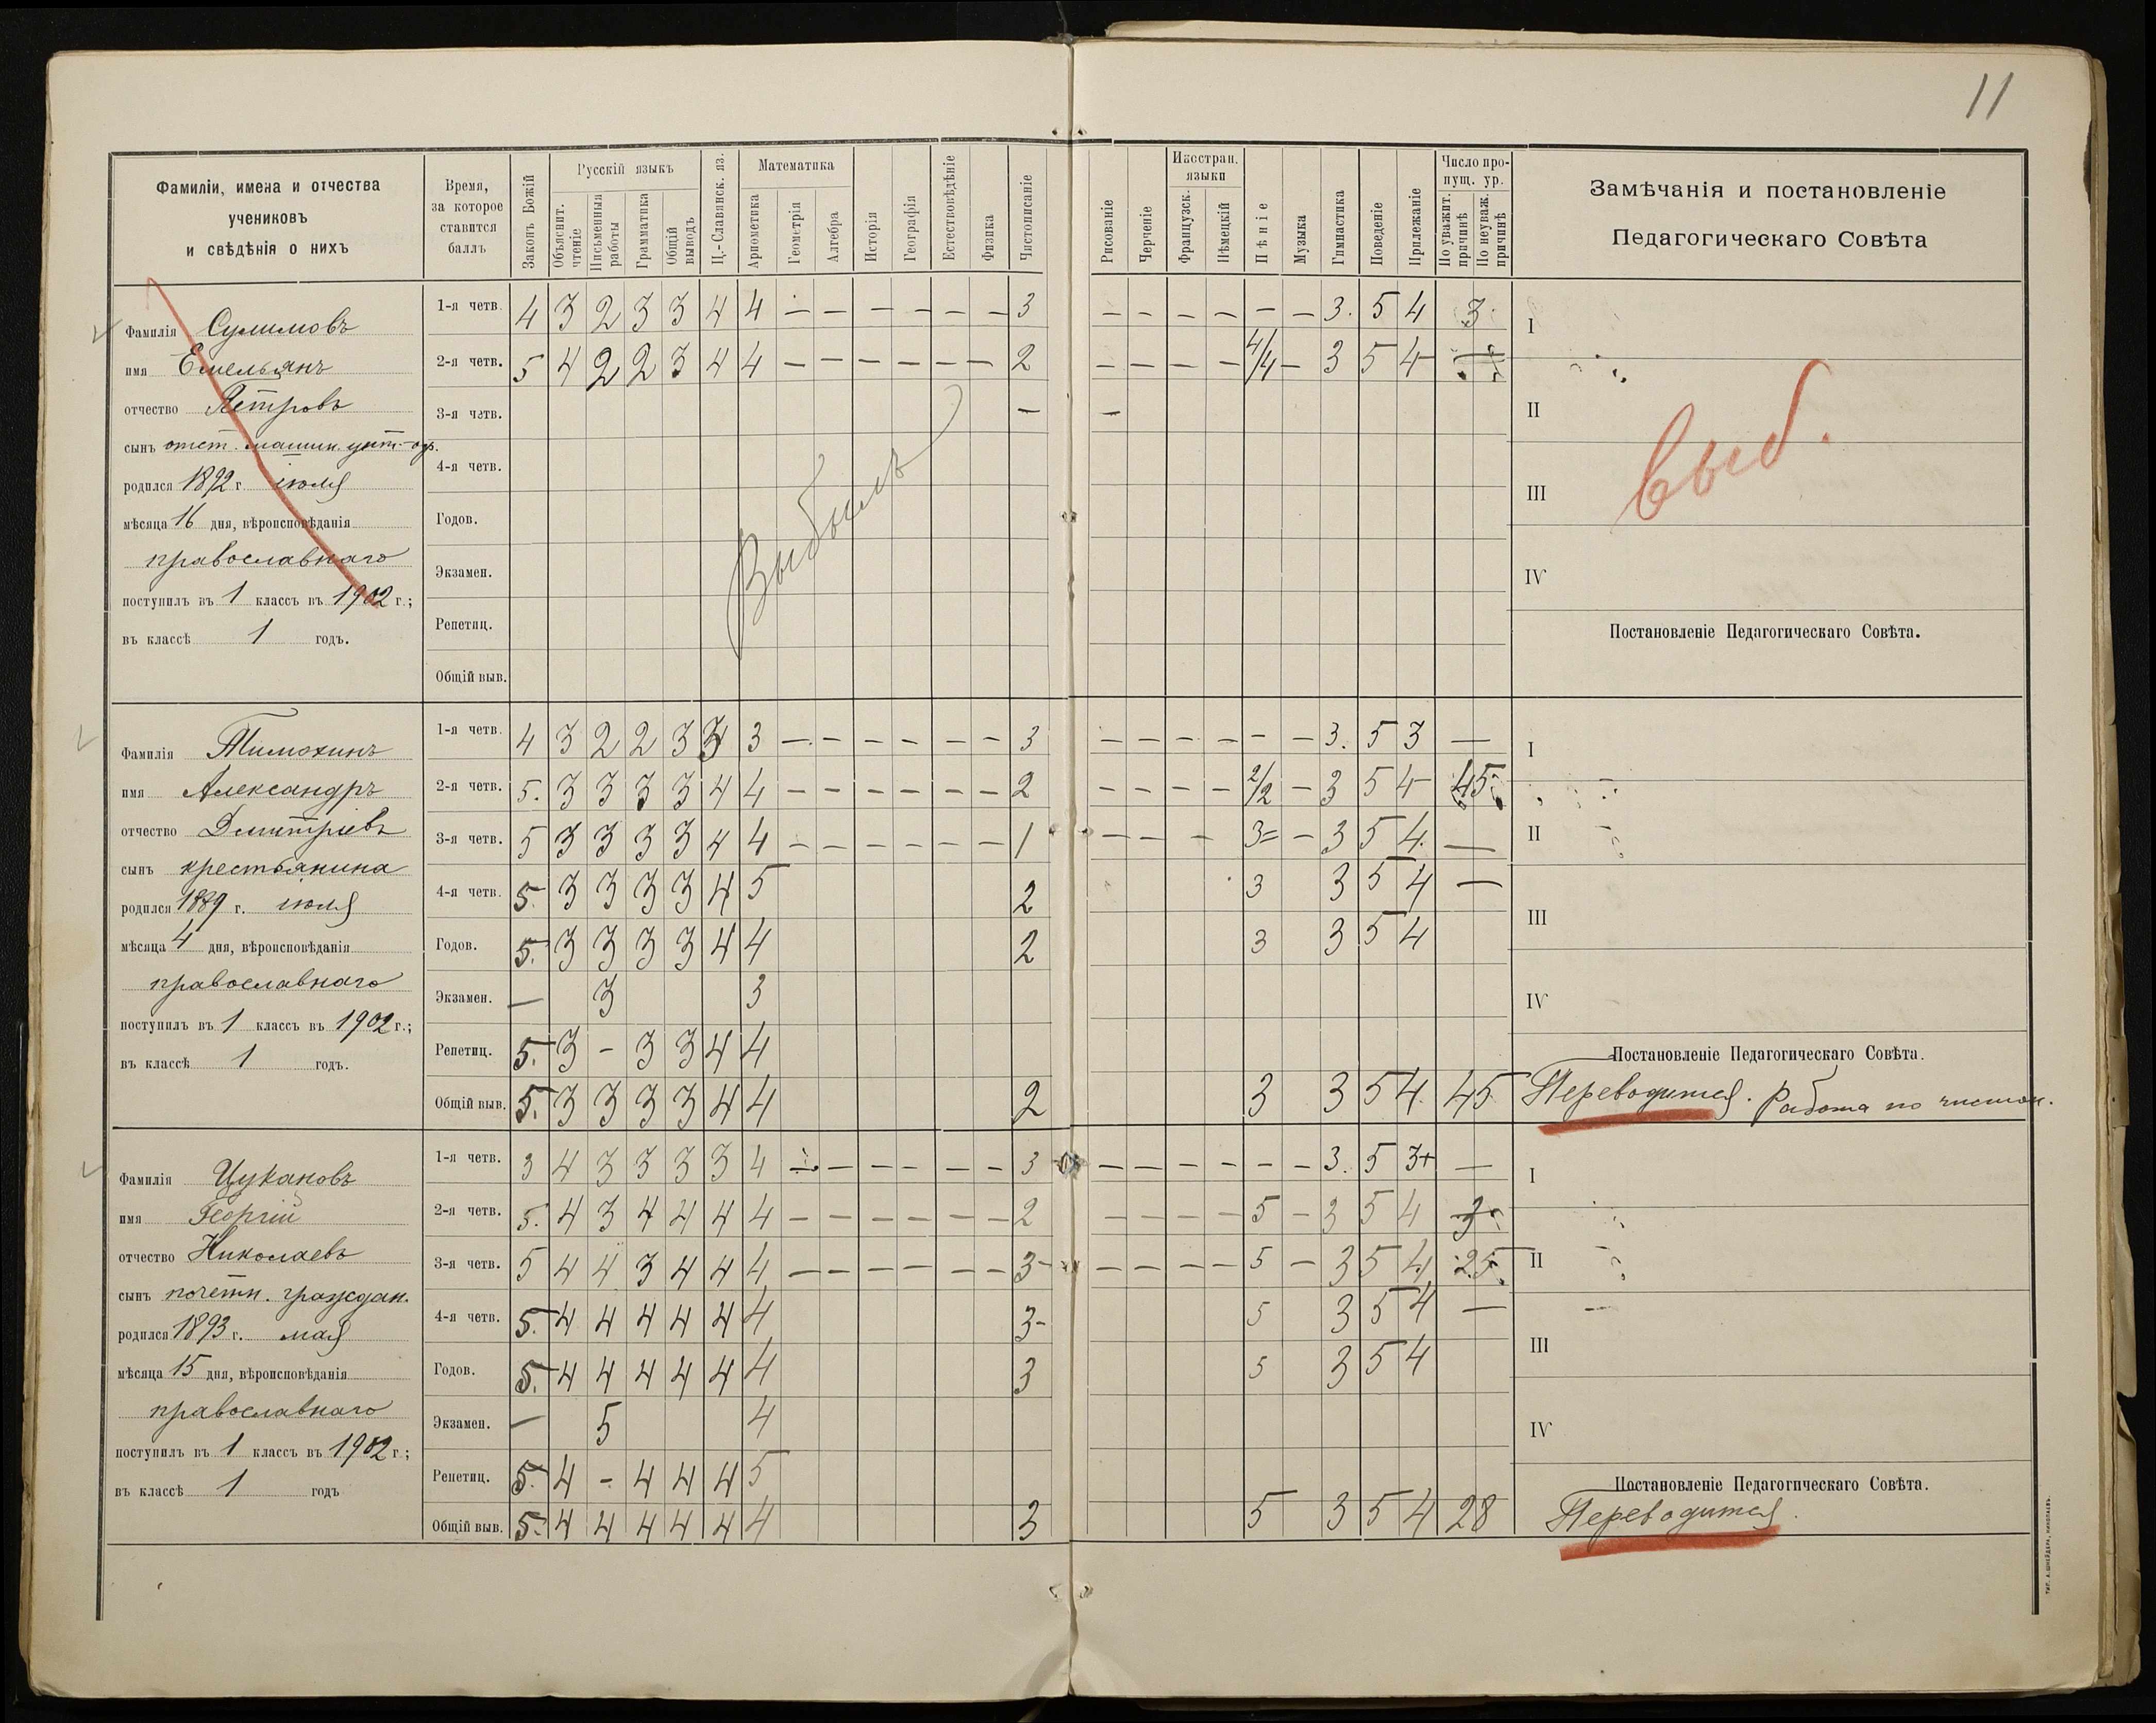 11
Фамиліи, имена и отчества
учениковъ
и свѣдѣнія о нихъ
Время,
за которое
ставится
баллъ
Законъ Божій
Русскій языкъ
Объяснит.
чтеніе
Письменныя
работы
Грамматика
Общій
выводъ
Ц.-Славянск. яз.
Математика
Ариѳметика
Геометрія
Алгебра
Исторія
Географія
Естествовѣдѣніе
Физика
Чистописаніе
Рисованіе
Черченіе
Иностран.
языки
Французск.
Нѣмецкій
Пѣніе
Музыка
Гимнастика
Поведеніе
Прилежаніе
Число про-
пущ. ур.
По уважит.
причинѣ
По неуваж.
причинѣ
Замѣчанія и постановленіе
Педагогическаго Совѣта
Фамилія Сулимовъ
имя Емельянъ
отчество Петровъ
сынъ отст. машин. унт-оф.
родился 1892 г. іюля
мѣсяца 16 дня, вѣроисповѣданія
православнаго
поступилъ въ 1 классъ въ 1902 г.;
въ классѣ 1 годъ.
1-я четв. 4 3 2 3 3 4 4 – – – – – – – 3 – – – – – – 3. 5 4 3
2-я четв. 5 4 2 2 3 4 4 – – – – – – 2 – – – – 4/4 – 3 5 4 –
3-я четв. – –
4-я четв.
Годов.
Экзамен.
Репетиц.
Общій выв.
Выбылъ
I
II
III
IV
выб.
Постановленіе Педагогическаго Совѣта.
Фамилія Тимохинъ
имя Александръ
отчество Дмитріевъ
сынъ крестьянина
родился 1889 г. іюля
мѣсяца 4 дня, вѣроисповѣданія
православнаго
поступилъ въ 1 классъ въ 1902 г.;
въ классѣ 1 годъ.
1-я четв. 4 3 2 2 3 3 3 – – – – – – 3 – – – – – – 3. 5 3 —
2-я четв. 5. 3 3 3 3 4 4 – – – – – – 2 – – – – 2/2 – 3 5 4 45
3-я четв. 5 3 3 3 3 4 4 – – – – – – 1 – – – 3= – 3 5 4. —
4-я четв. 5. 3 3 3 3 4 5 2 3 3 5 4 —
Годов. 5. 3 3 3 3 4 4 2 3 3 5 4
Экзамен. — 3 3
Репетиц. 5. 3 – 3 3 4 4
Общій выв. 5. 3 3 3 3 4 4 2 3 3 5 4. 45
I
II
III
IV
Постановленіе Педагогическаго Совѣта.
Переводится. Работа по чистоп.
Фамилія Цукановъ
имя Георгій
отчество Николаевъ
сынъ почетн. граждан.
родился 1893 г. мая
мѣсяца 15 дня, вѣроисповѣданія
православнаго
поступилъ въ 1 классъ въ 1902 г.;
въ классѣ 1 годъ
1-я четв. 3 4 3 3 3 3 4 – – – – – – 3 – – – – – – 3. 5 3+ —
2-я четв. 5. 4 3 4 4 4 4 – – – – – – 2 – – – – 5 – 3 5 4 3
3-я четв. 5 4 4 3 4 4 4 – – – – – – 3- – – – – 5 – 3 5 4 25
4-я четв. 5. 4 4 4 4 4 4 3- 5 3 5 4 —
Годов. 5. 4 4 4 4 4 4 3 5 3 5 4
Экзамен. — 5 4
Репетиц. 5. 4 – 4 4 4 5
Общій выв. 5. 4 4 4 4 4 4 3 5 3 5 4 28
I
II
III
IV
Постановленіе Педагогическаго Совѣта.
Переводится.
ТИП. А. ШНЕЙДЕРА, НИКОЛАЕВЪ.